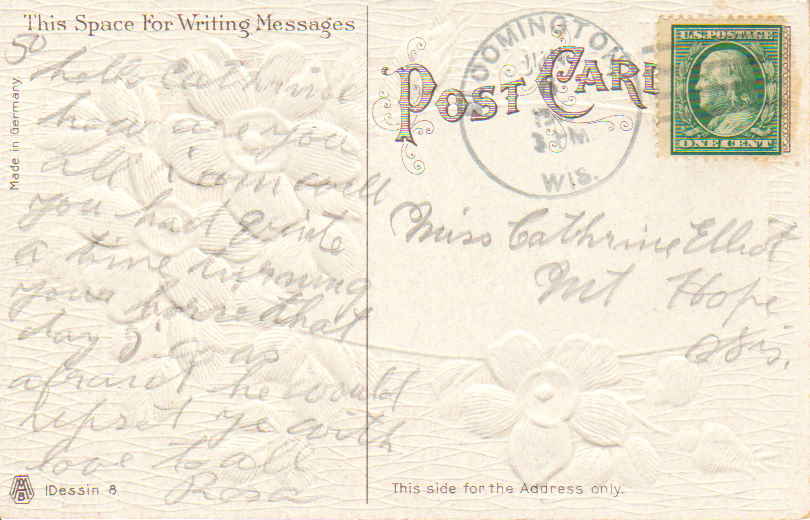 This Space For Writing Messages
50
Made in Germany
Hello Cathrine
how are you
all I am well
you had quite
a time turning
your horse that
day I was
afraid he would
upset ye with
love to all
Rosa
Dessin 8
POST CARD
OOMINGTON
WIS.
U.S. POSTAGE
ONE CENT
Miss Cathrine Elliot
Mt Hope
Wis.
This side for the Address only.